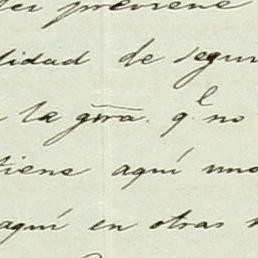 previene
lidad de segur
la gĩra. q.^l no
tiene aquí uno
aquí en otras